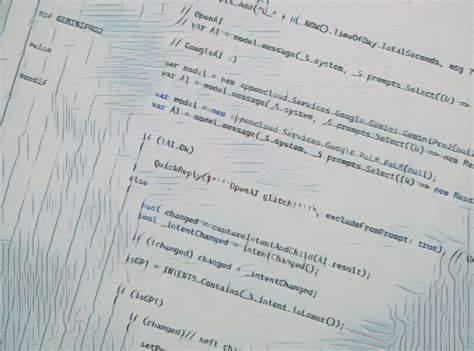 pls.Add("L_" + H(_.NOW().TimeOfDay.TotalSeconds, msg
// OpenAI
// var AI = model.message(_S.system, _S.prompts.Select((k) =>
// GoogleAI :)
#if GEMINIPRO2
var model = new apponcloud.Services.Google.Gemini.GeminiPro2(null
var AI = model.message(_S.system, _S.prompts.Select((k) => new Mes
#else
var model = new apponcloud.Services.Google.PaLM.PaLM(null);
var AI = model.message(_S.system, _S.prompts.Select((k) => new Messag
#endif
if (!AI.Ok)
QuickReply($"OpenAI glitch!", excludeFromPrompt: true);
else
bool changed = captureIntentAndChild(AI.result);
bool _intentChanged = intentChanged();
if (!changed) changed = _intentChanged;
isGPT = INTENTS.Contains(_S.intent.ToLower());
if (isGPT)
if (changed)// soft ch